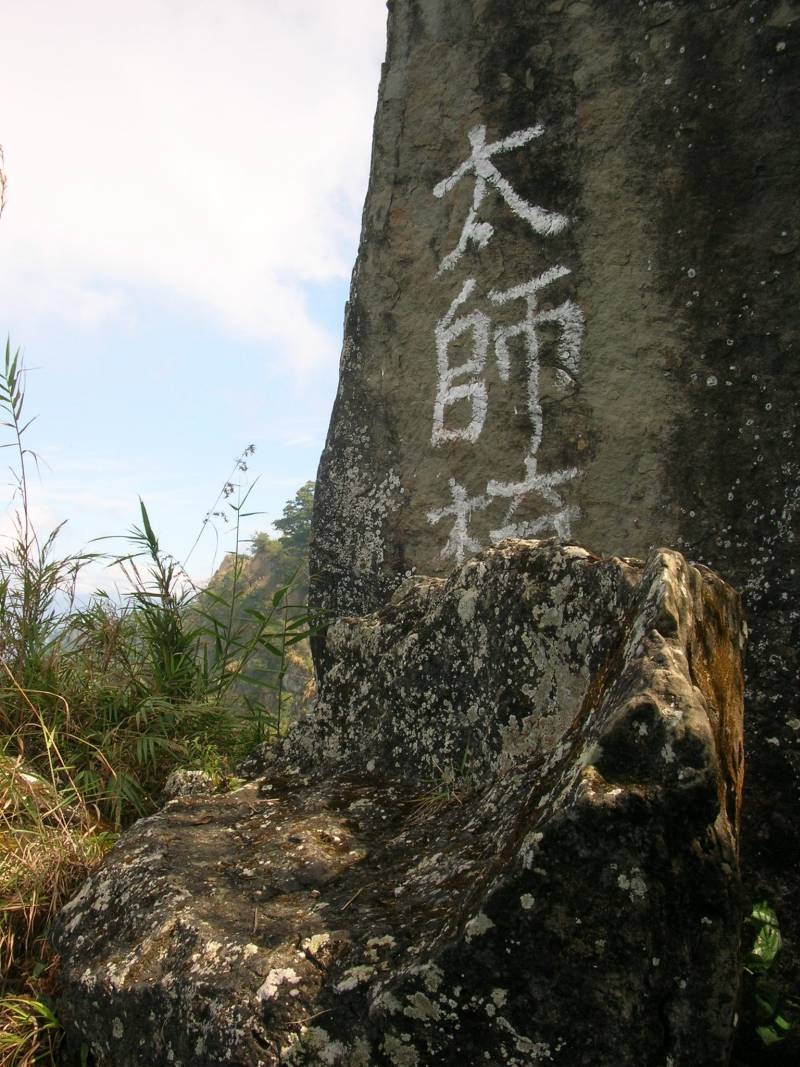 太師椅